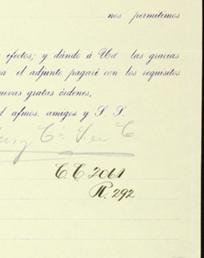 nos permitimos
efectos; y dándo á Ud las gracias
el adjunto pagaré con los requisitos
nuevas gratas órdenes,
afmos. amigos y S. S.
C C 2061
R. 292